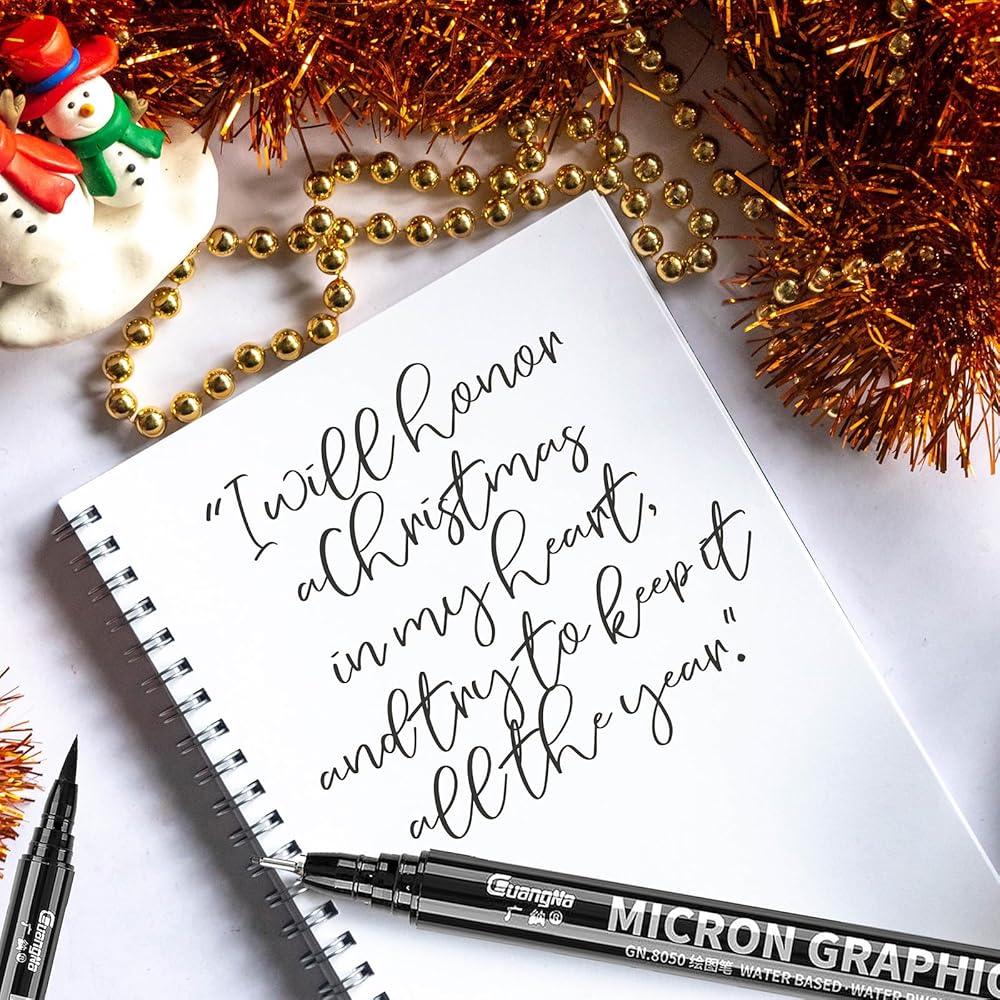 "I will honor
a Christmas
in my heart,
and try to keep it
all the year."
GuangNa
广纳®
MICRON GRAPHIC
GN.8050 绘图笔 WATER BASED·WATER
GuangNa